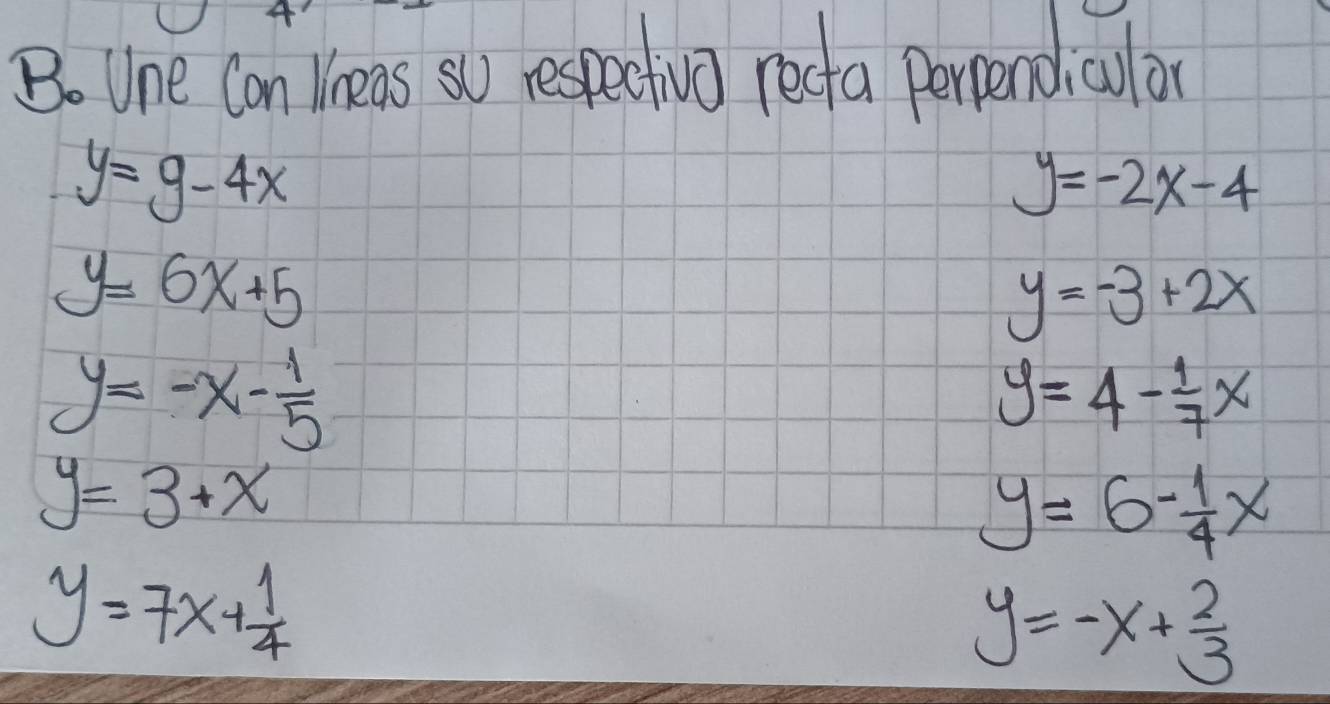 B. Une con líneas su respectiva recta perpendicular
y = 9 - 4x
y = -2x - 4
y = 6x + 5
y = -3 + 2x
y = -x - 1/5
y = 4 - 1/7 x
y = 3 + x
y = 6 - 1/4 x
y = 7x + 1/4
y = -x + 2/3